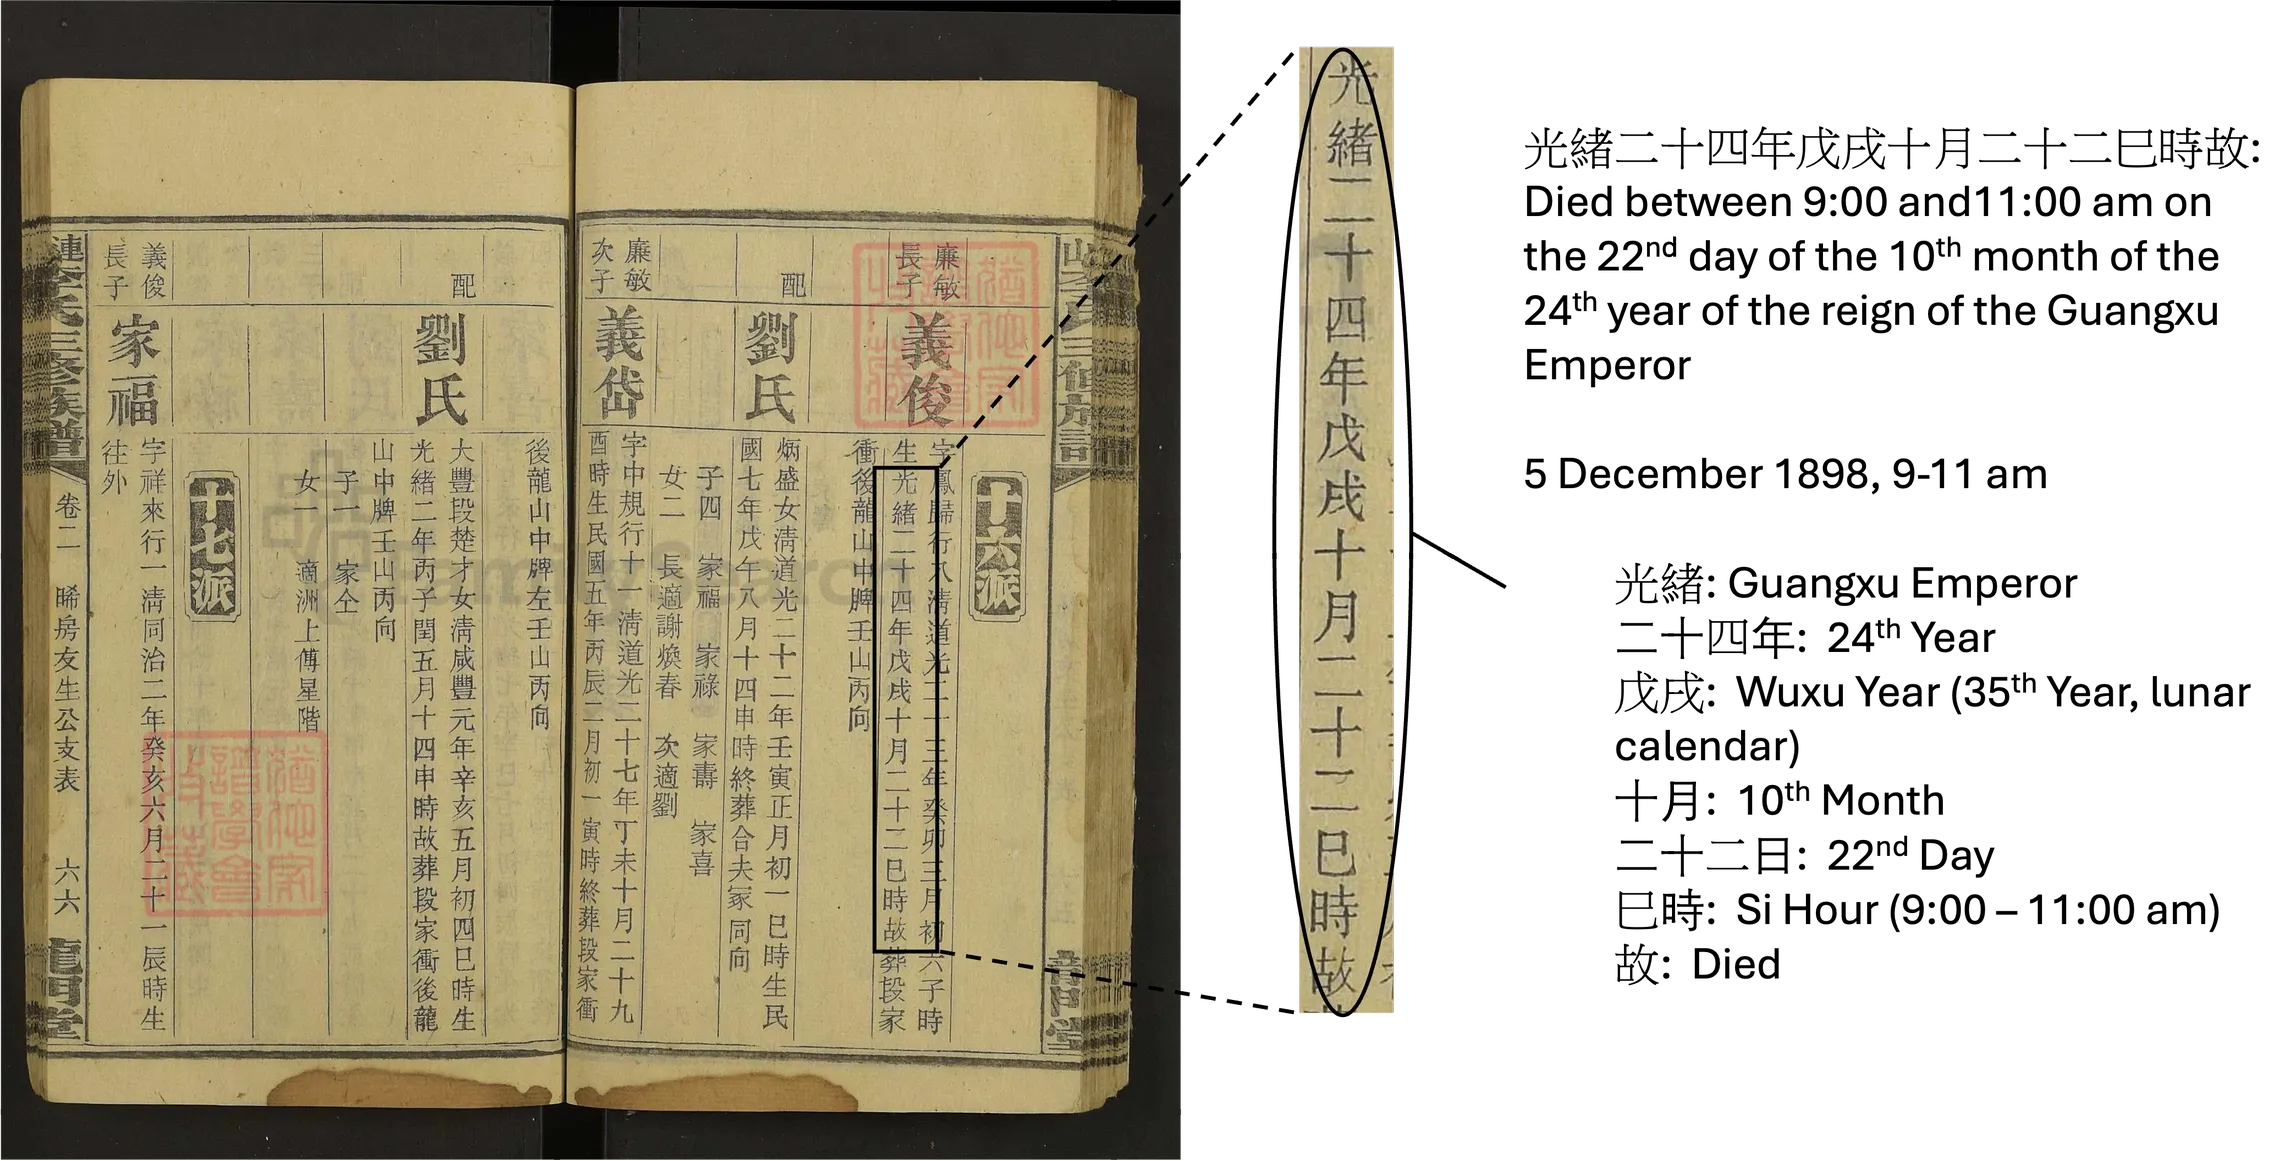 十六派
廉敏
長子
義俊
字鳳歸行八淸道光二十三年癸卯三月初六子時
生光緒二十四年戊戌十月二十二巳時故葬段家
衝後龍山中牌壬山丙向
配
劉氏
炳盛女淸道光二十二年壬寅正月初一巳時生民
國七年戊午八月十四申時終葬合夫冢同向
子四 家福 家祿 家壽 家喜
女二 長適謝煥春 次適劉
廉敏
次子
義岱
字中規行十一淸道光二十七年丁未十月二十九
酉時生民國五年丙辰二月初一寅時終葬段家衝
後龍山中牌左壬山丙向
配
劉氏
大豐段楚才女淸咸豐元年辛亥五月初四巳時生
光緒二年丙子閏五月十四申時故葬段家衝後龍
山中牌壬山丙向
子一 家仝
女一 適洲上傅星階
十七派
義俊
長子
家福
字祥來行一淸同治二年癸亥六月二十一辰時生
往外
漣李氏三修族譜 卷二 晞房友生公支表 六六 龍門堂
FamilySearch
光緒二十四年戊戌十月二十二巳時故
光緒二十四年戊戌十月二十二巳時故:
Died between 9:00 and11:00 am on
the 22nd day of the 10th month of the
24th year of the reign of the Guangxu
Emperor
5 December 1898, 9-11 am
光緒: Guangxu Emperor
二十四年: 24th Year
戊戌: Wuxu Year (35th Year, lunar
calendar)
十月: 10th Month
二十二日: 22nd Day
巳時: Si Hour (9:00 – 11:00 am)
故: Died